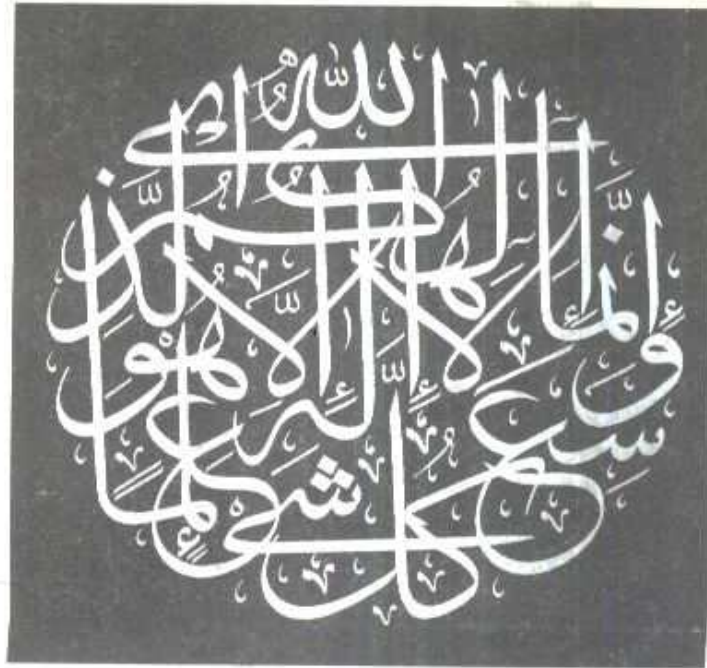 إِنَّمَا إِلَٰهُكُمُ اللَّهُ الَّذِي لَا إِلَٰهَ إِلَّا هُوَ وَسِعَ كُلَّ شَيْءٍ عِلْمًا